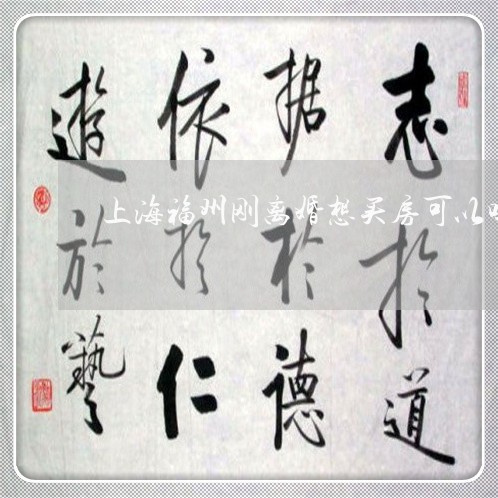 志於道
据於德
依於仁
遊於藝
上海福州刚离婚想买房可以